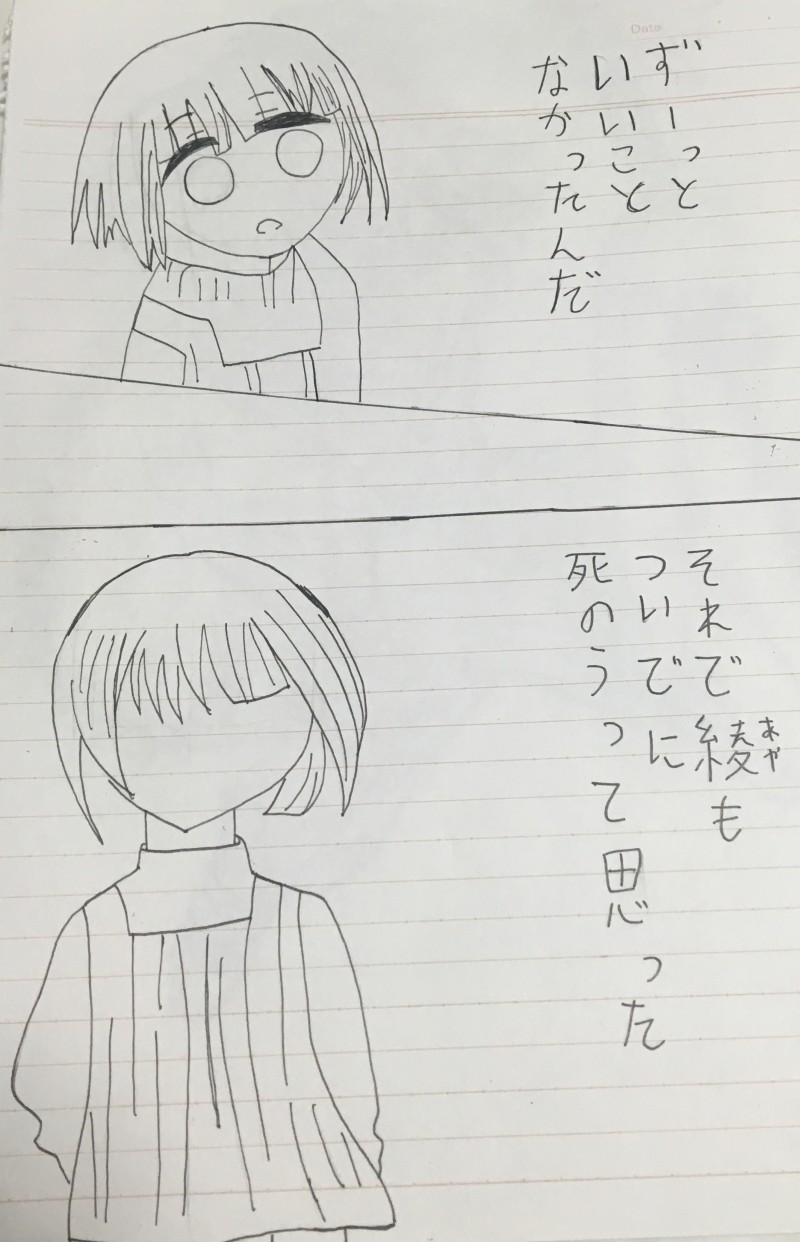 Date
ずーっと
いいこと
なかったんだ
それで綾も
あや
ついでに
死のうって思った